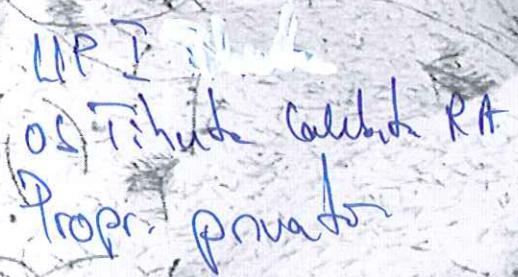 UP I
OS Tihuta Colibita RA
Propr. privată